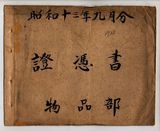 昭和十三年九月分
證憑書
物品部